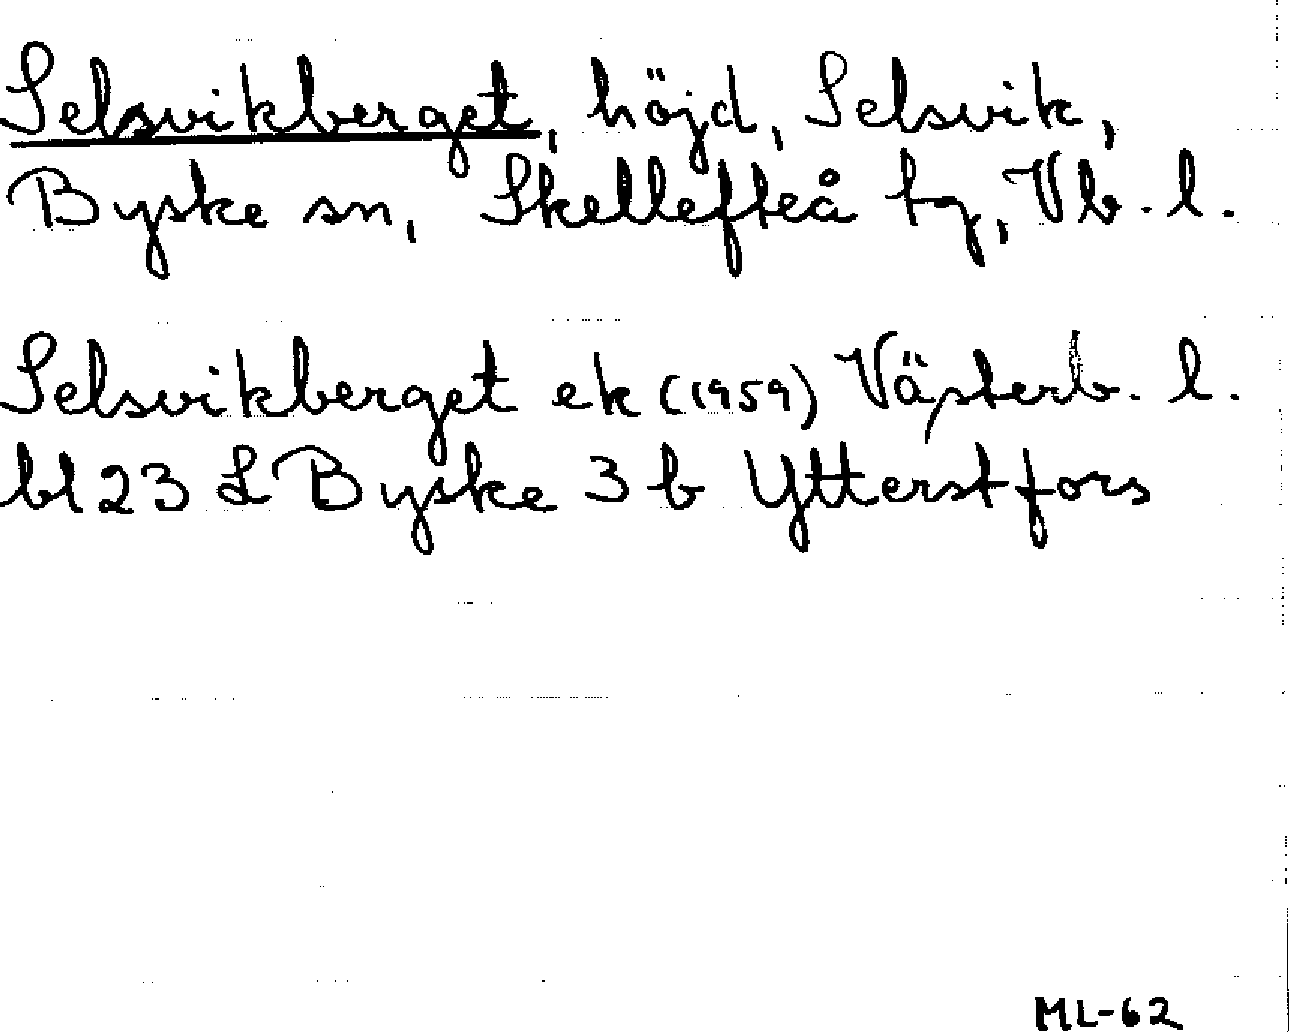 Selsvikberget, höjd, Selsvik,
Byske sn, Skellefteå tg, Vb. l.
Selsvikberget ek (1959) Västerb. l.
bl 23 L Byske 3 b Ytterstfors
ML-62